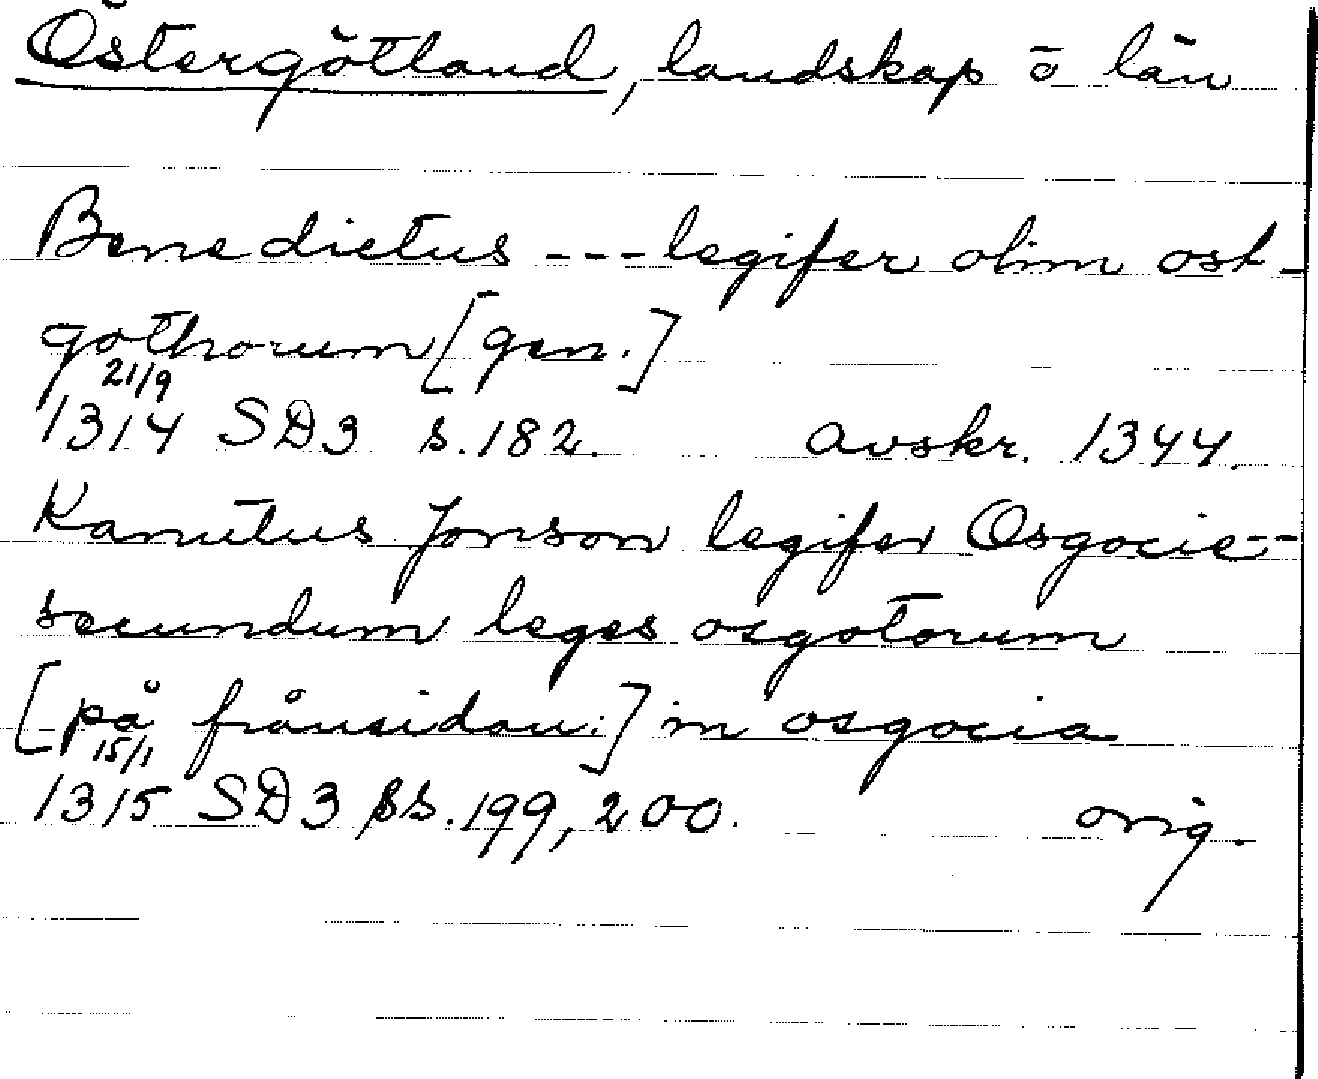 Östergötland, landskap o län
Benedictus --- legifer olim ost-
gothorum [gen.]
21/9
1314 SD3 s.182. avskr. 1344.
Kanutus Jonson legifer Osgocie--
secundum leges osgotorum
[på frånsidan:] in osgocia
15/1
1315 SD3 ss.199,200. orig.